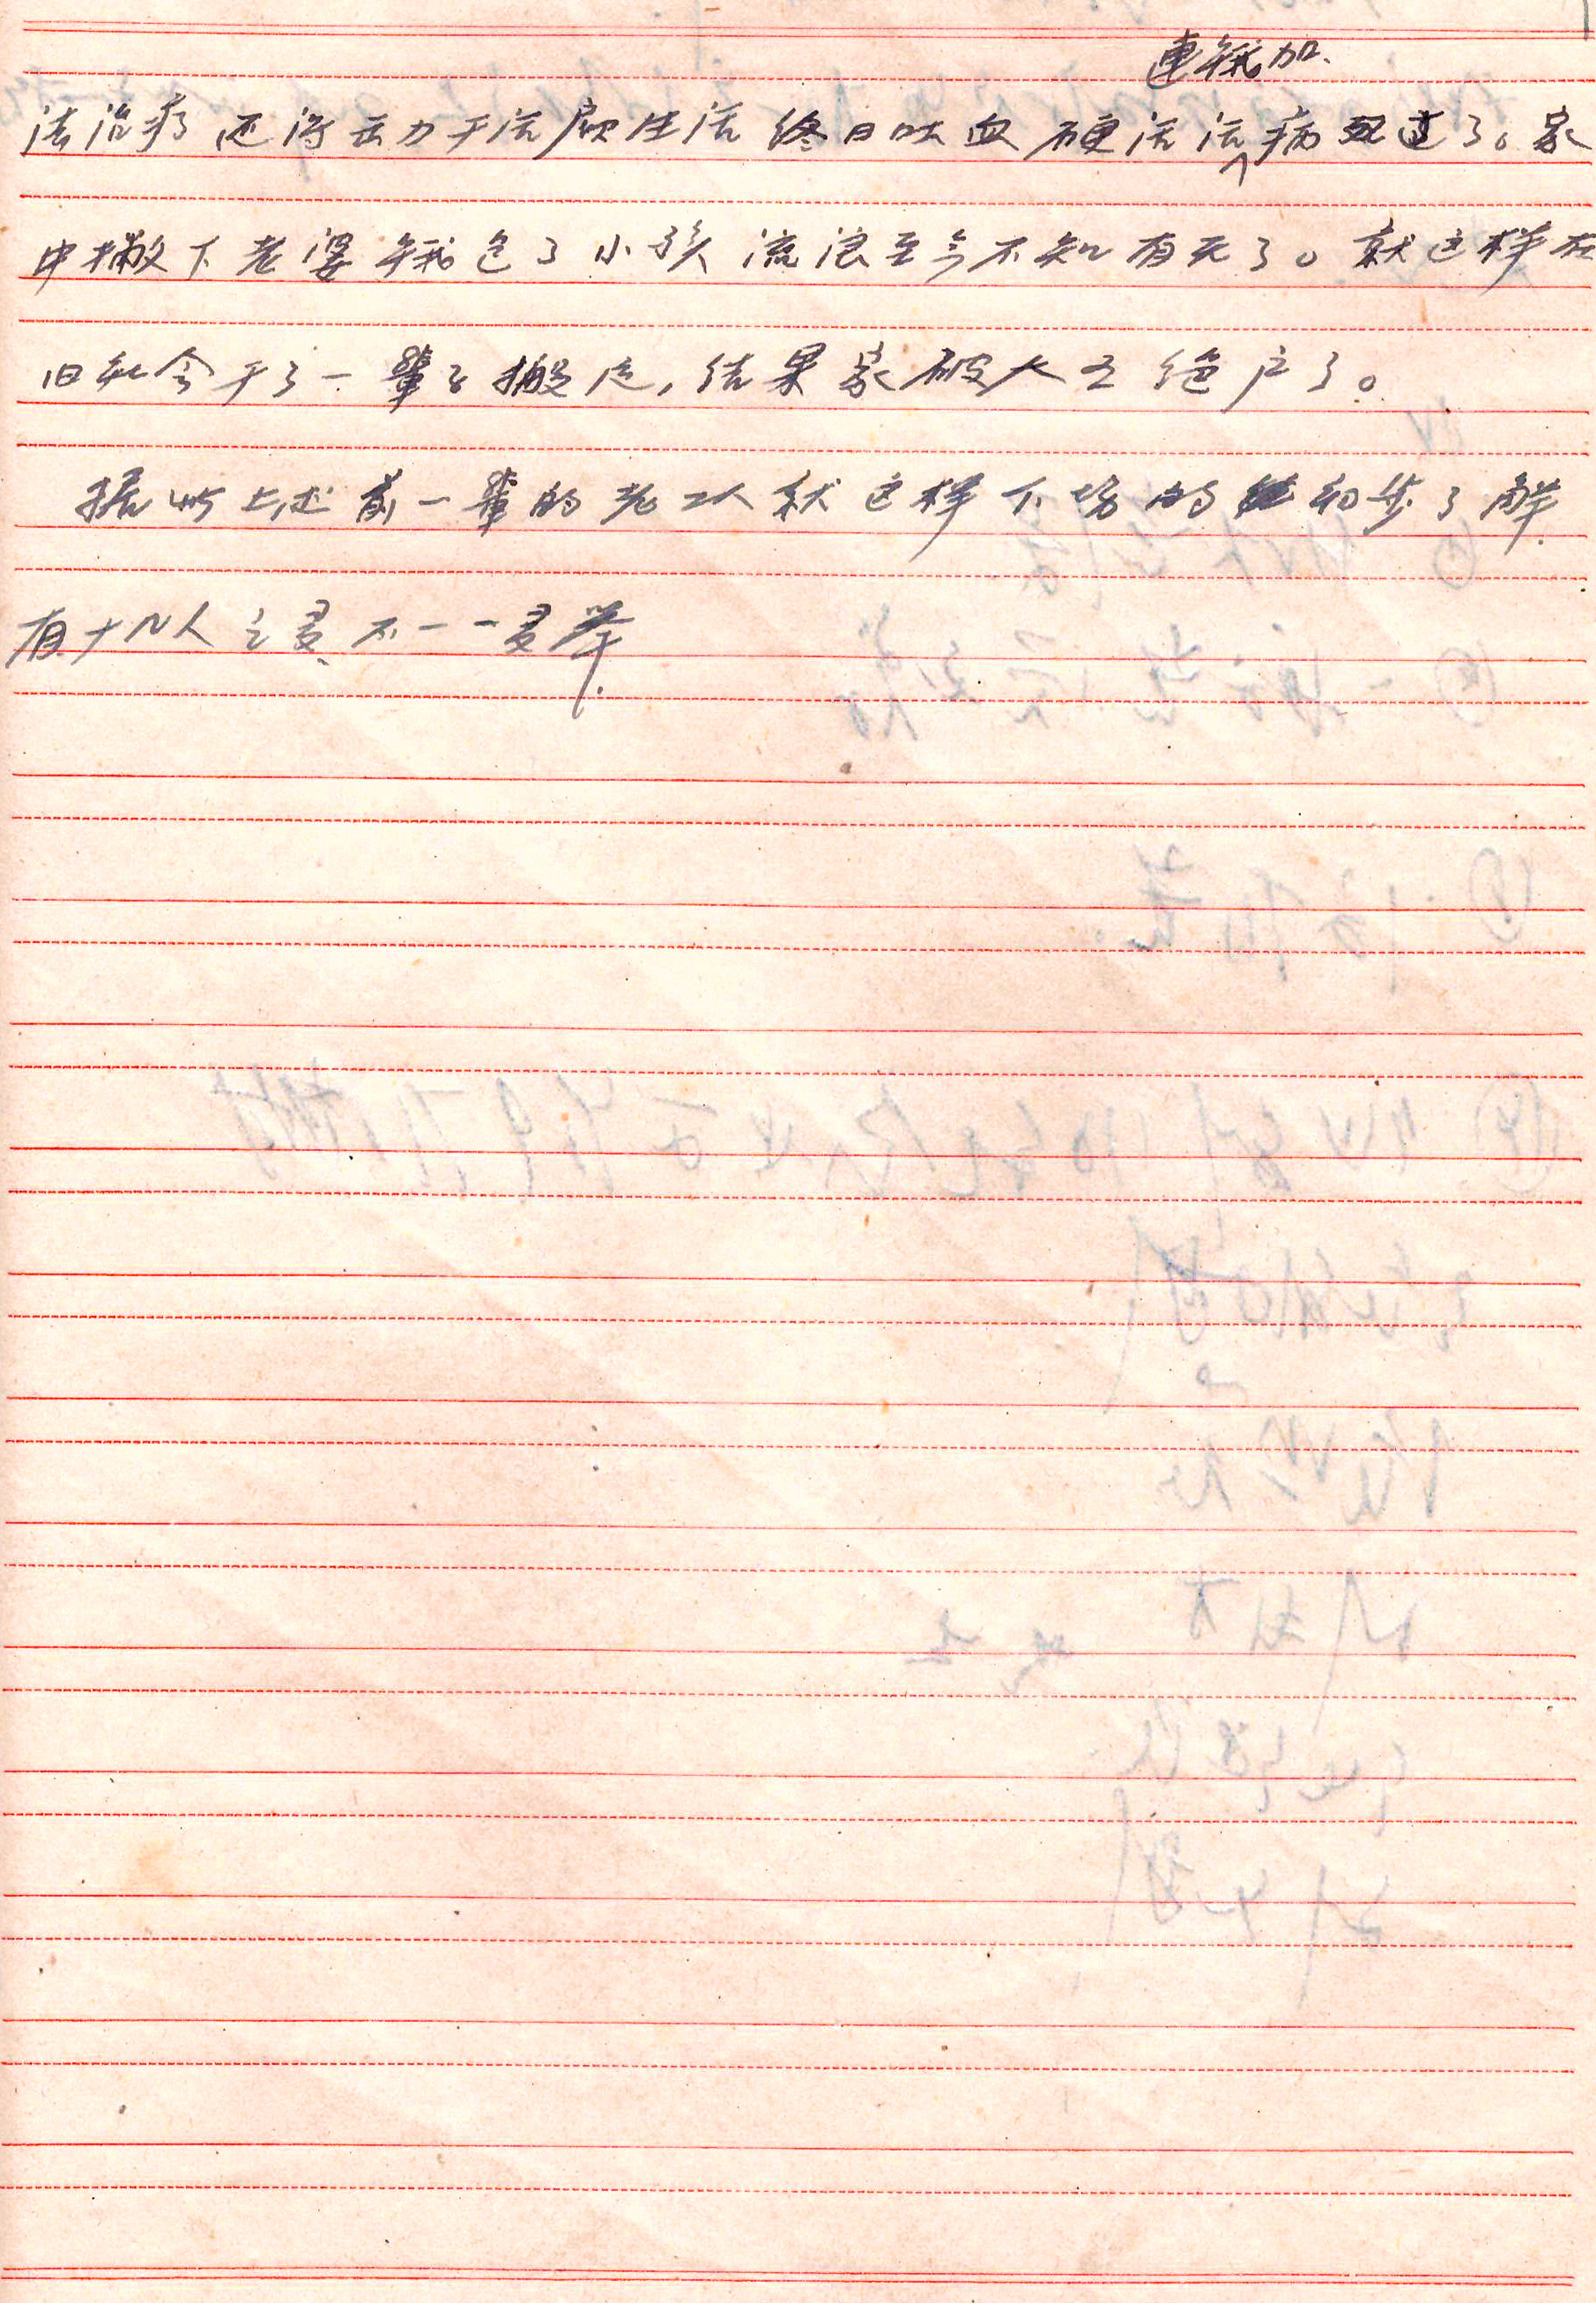 連饿加
法治疗 还得去力干活顾生活 终日吐血 硬活活病死过了。家
中撇下老婆饿包了小孩流浪至今不知有无了。就这样在
旧社会干了一辈子搬运,结果家破人亡绝户了。
据此上述前一辈的老工人就这样下场的初步了解
有十几人之多 不一一多举